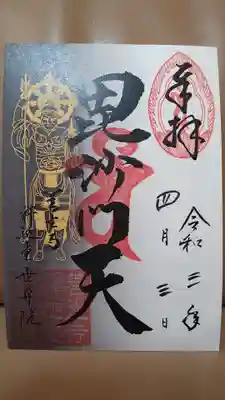 奉拝
令和二年
四月三日
毘沙門天
善光寺
世尊院